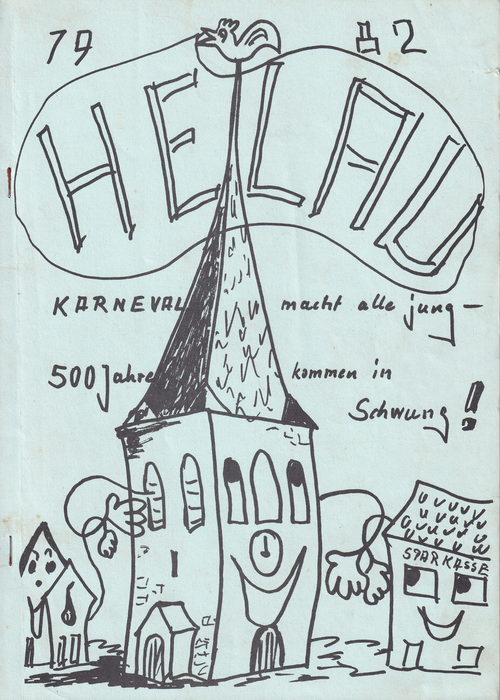 19 82
HELAU
KARNEVAL macht alle jung –
500 Jahre kommen in
Schwung!
SPARKASSE